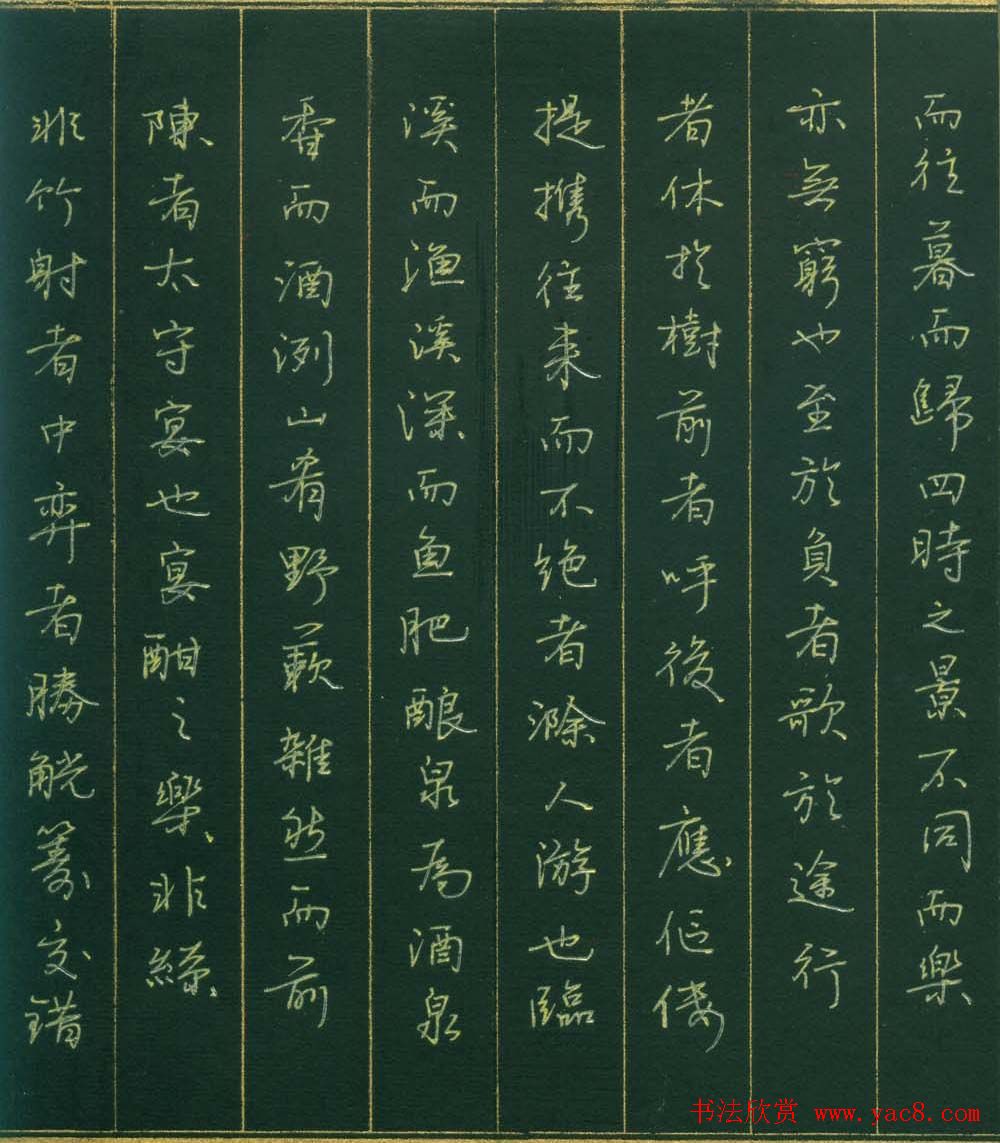 而往暮而歸四時之景不同而樂
亦無窮也至於負者歌於途行
者休於樹前者呼後者應傴僂
提攜往來而不绝者滁人游也臨
溪而漁溪深而魚肥酿泉為酒泉
香而酒洌山肴野蔌雜然而前
陳者太守宴也宴酣之樂非絲
非竹射者中弈者勝觥籌交错
书法欣赏 www.yac8.com